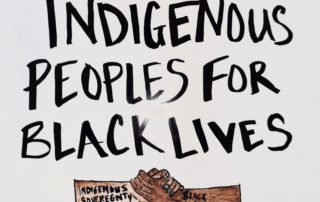 INDIGENOUS
PEOPLES FOR
BLACK LIVES
INDIGENOUS
SOVEREGNTY
BLACK